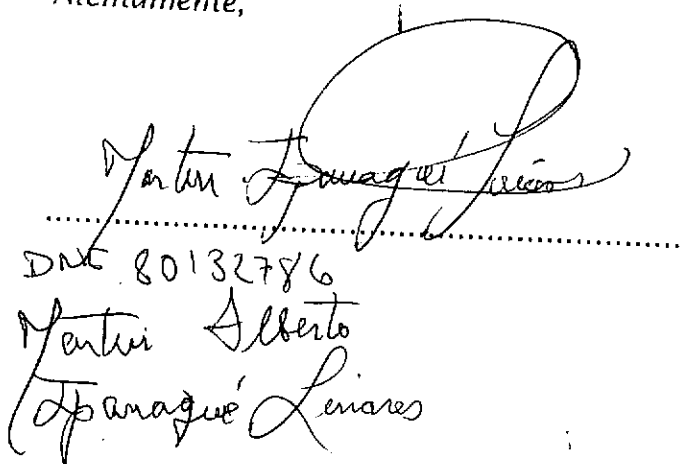 Atentamente,
Martin Ipanaqué Linares
DNI 80132786
Martin Alberto
Ipanaqué Linares